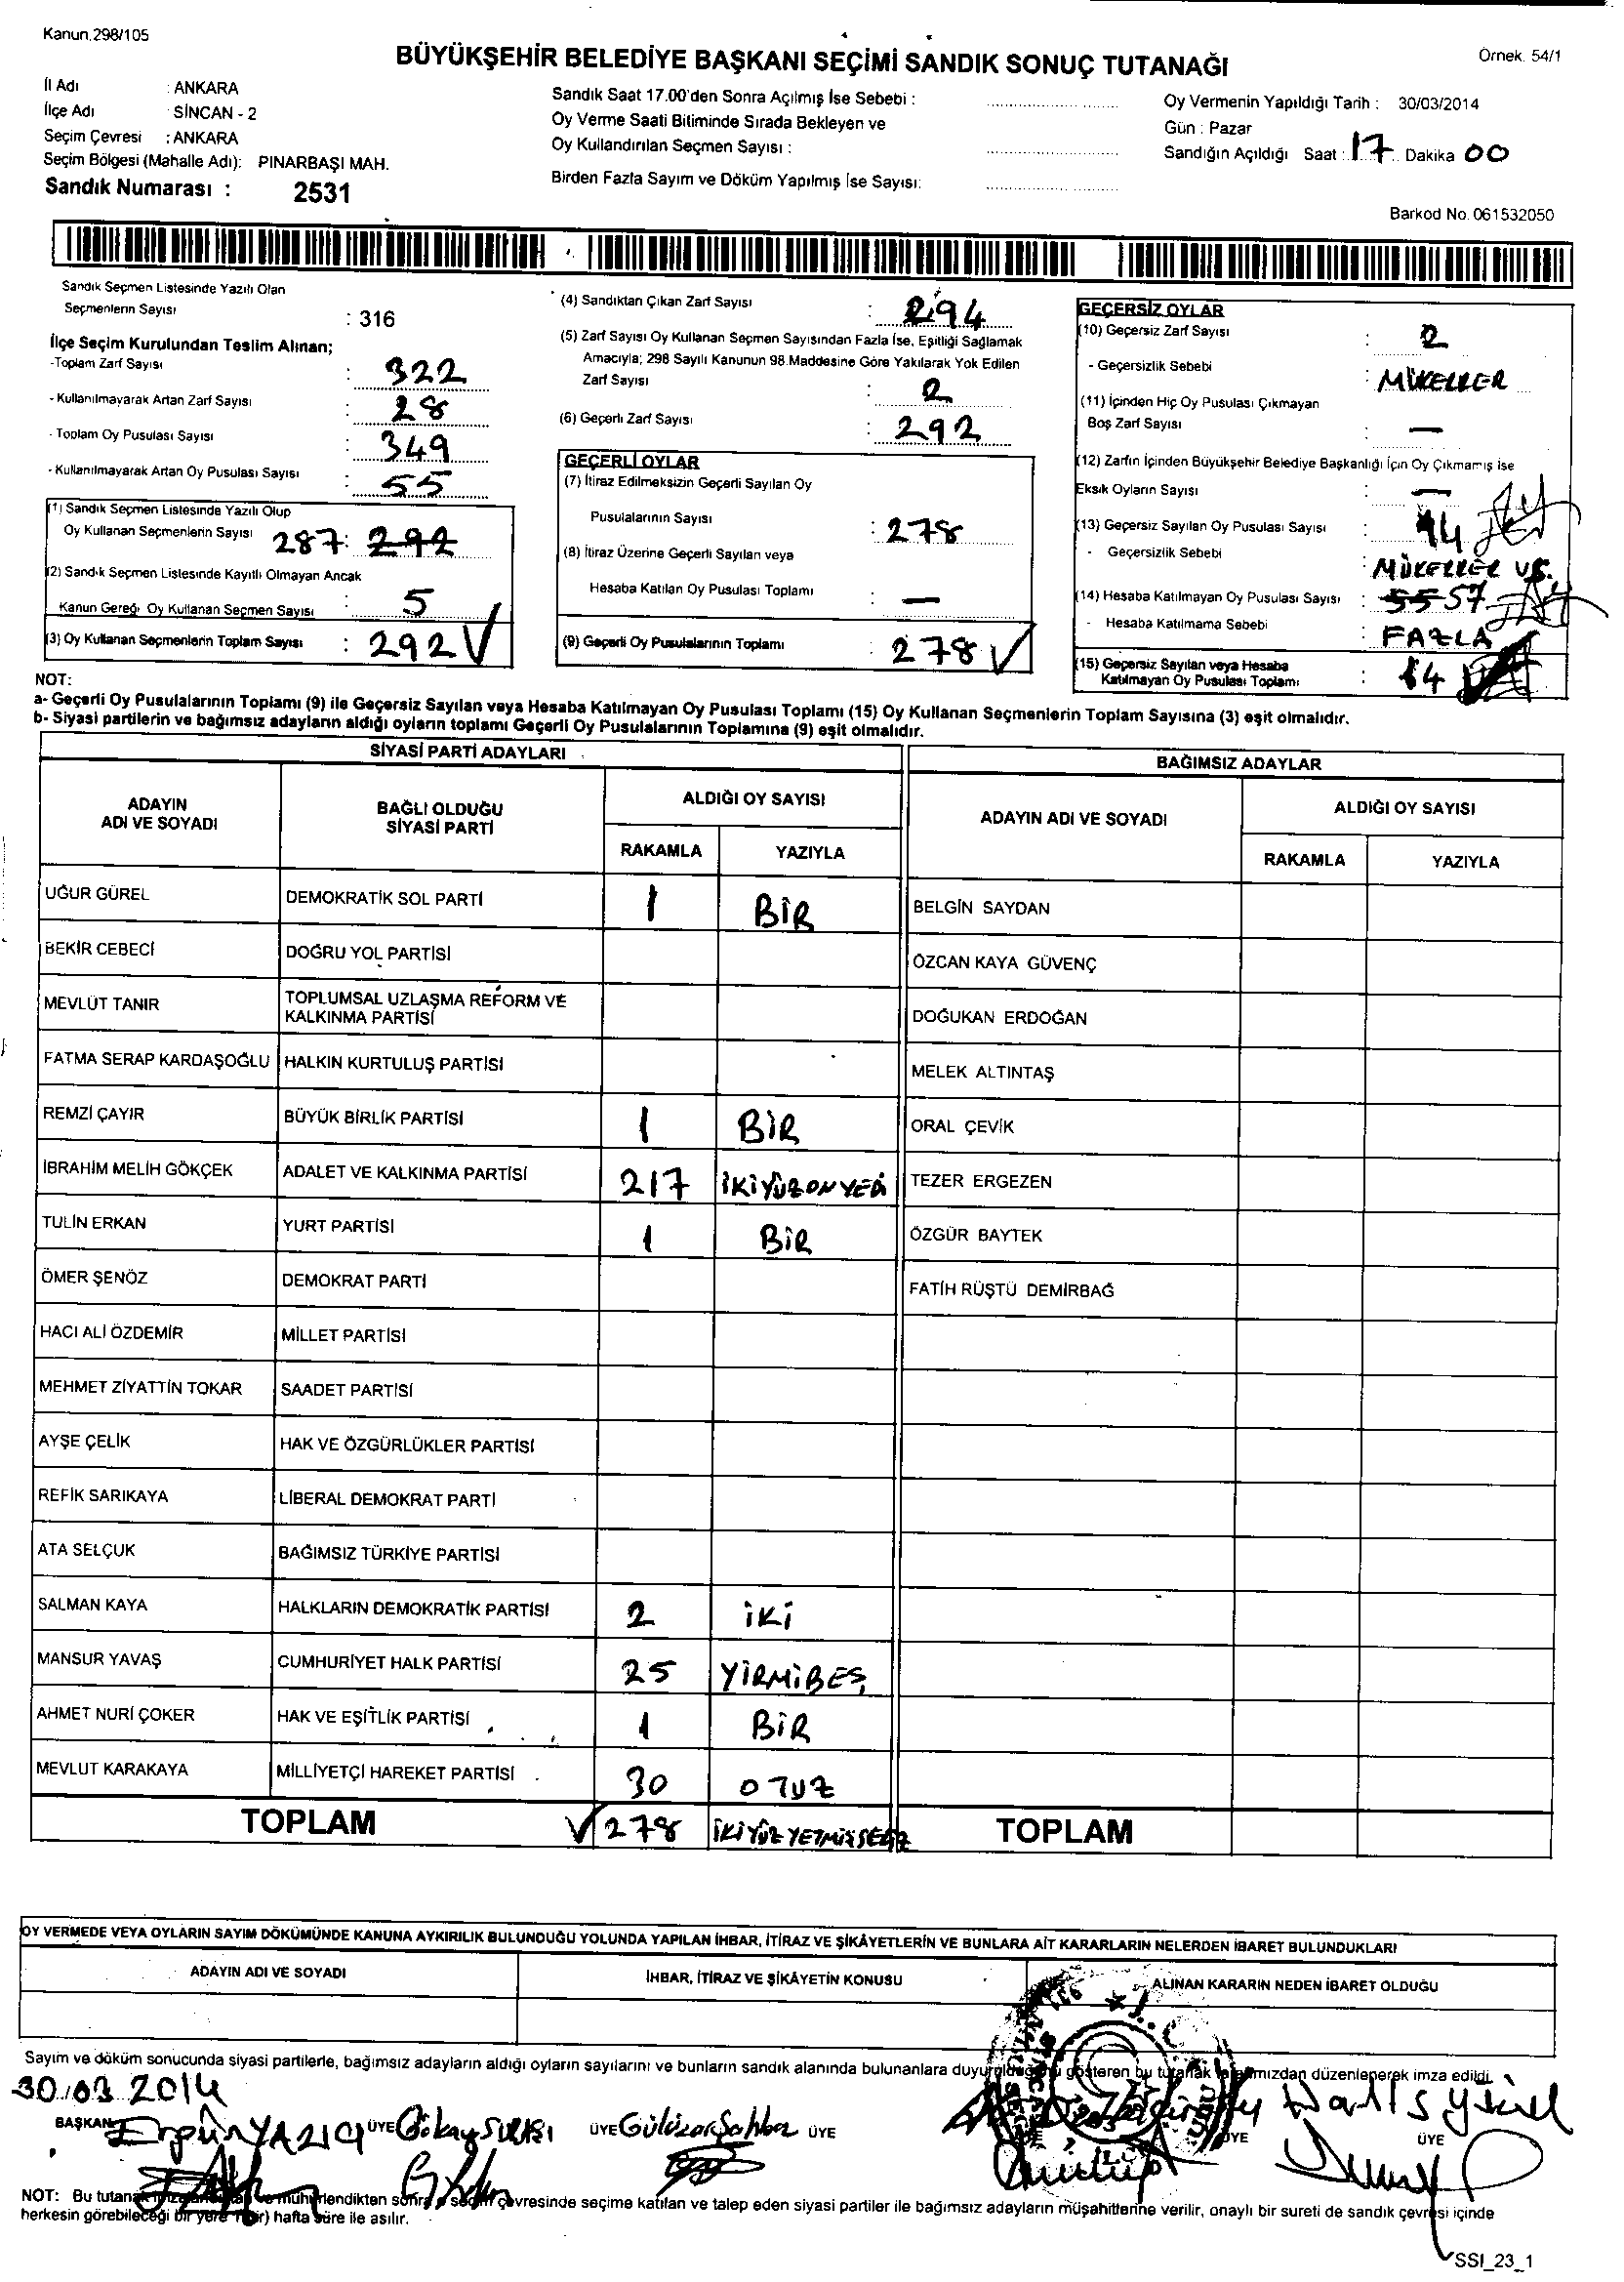 Kanun.298/105
BÜYÜKŞEHİR BELEDİYE BAŞKANI SEÇİMİ SANDIK SONUÇ TUTANAĞI
Örnek. 54/1
İl Adı : ANKARA
İlçe Adı SİNCAN - 2
Seçim Çevresi : ANKARA
Seçim Bölgesi (Mahalle Adı): PINARBAŞI MAH.
Sandık Numarası : 2531
Sandık Saat 17.00'den Sonra Açılmış İse Sebebi :
Oy Verme Saati Bitiminde Sırada Bekleyen ve
Oy Kullandırılan Seçmen Sayısı :
Birden Fazla Sayım ve Döküm Yapılmış İse Sayısı:
Oy Vermenin Yapıldığı Tarih : 30/03/2014
Gün : Pazar
Sandığın Açıldığı Saat : 17 Dakika 00
Barkod No. 061532050
Sandık Seçmen Listesinde Yazılı Olan
Seçmenlerin Sayısı : 316
İlçe Seçim Kurulundan Teslim Alınan;
-Toplam Zarf Sayısı : 322
- Kullanılmayarak Artan Zarf Sayısı : 28
- Toplam Oy Pusulası Sayısı : 349
- Kullanılmayarak Artan Oy Pusulası Sayısı : 55
(1) Sandık Seçmen Listesinde Yazılı Olup
Oy Kullanan Seçmenlerin Sayısı 287 : 292
(2) Sandık Seçmen Listesinde Kayıtlı Olmayan Ancak
Kanun Gereği Oy Kullanan Seçmen Sayısı : 5
(3) Oy Kullanan Seçmenlerin Toplam Sayısı : 292
(4) Sandıktan Çıkan Zarf Sayısı : 294
(5) Zarf Sayısı Oy Kullanan Seçmen Sayısından Fazla İse, Eşitliği Sağlamak
Amacıyla; 298 Sayılı Kanunun 98.Maddesine Göre Yakılarak Yok Edilen
Zarf Sayısı : 2
(6) Geçerli Zarf Sayısı : 292
GEÇERLİ OYLAR
(7) İtiraz Edilmeksizin Geçerli Sayılan Oy
Pusulalarının Sayısı : 278
(8) İtiraz Üzerine Geçerli Sayılan veya
Hesaba Katılan Oy Pusulası Toplamı : —
(9) Geçerli Oy Pusulalarının Toplamı : 278
GEÇERSİZ OYLAR
(10) Geçersiz Zarf Sayısı : 2
- Geçersizlik Sebebi : MÜKERRER
(11) İçinden Hiç Oy Pusulası Çıkmayan
Boş Zarf Sayısı : —
(12) Zarfın İçinden Büyükşehir Belediye Başkanlığı İçin Oy Çıkmamış İse
Eksik Oyların Sayısı : —
(13) Geçersiz Sayılan Oy Pusulası Sayısı : 14
- Geçersizlik Sebebi : MÜKERRER VS.
(14) Hesaba Katılmayan Oy Pusulası Sayısı : 55 57
- Hesaba Katılmama Sebebi : FAZLA
(15) Geçersiz Sayılan veya Hesaba
Katılmayan Oy Pusulası Toplamı : 14
NOT:
a- Geçerli Oy Pusulalarının Toplamı (9) ile Geçersiz Sayılan veya Hesaba Katılmayan Oy Pusulası Toplamı (15) Oy Kullanan Seçmenlerin Toplam Sayısına (3) eşit olmalıdır.
b- Siyasi partilerin ve bağımsız adayların aldığı oyların toplamı Geçerli Oy Pusulalarının Toplamına (9) eşit olmalıdır.
SİYASİ PARTİ ADAYLARI
ADAYIN ADI VE SOYADI BAĞLI OLDUĞU SİYASİ PARTİ ALDIĞI OY SAYISI
RAKAMLA YAZIYLA
UĞUR GÜREL DEMOKRATİK SOL PARTİ 1 BİR
BEKİR CEBECİ DOĞRU YOL PARTİSİ
MEVLÜT TANIR TOPLUMSAL UZLAŞMA REFORM VE KALKINMA PARTİSİ
FATMA SERAP KARDAŞOĞLU HALKIN KURTULUŞ PARTİSİ
REMZİ ÇAYIR BÜYÜK BİRLİK PARTİSİ 1 BİR
İBRAHİM MELİH GÖKÇEK ADALET VE KALKINMA PARTİSİ 217 İKİYÜZONYEDİ
TÜLİN ERKAN YURT PARTİSİ 1 BİR
ÖMER ŞENÖZ DEMOKRAT PARTİ
HACI ALİ ÖZDEMİR MİLLET PARTİSİ
MEHMET ZİYATTİN TOKAR SAADET PARTİSİ
AYŞE ÇELİK HAK VE ÖZGÜRLÜKLER PARTİSİ
REFİK SARIKAYA LİBERAL DEMOKRAT PARTİ
ATA SELÇUK BAĞIMSIZ TÜRKİYE PARTİSİ
SALMAN KAYA HALKLARIN DEMOKRATİK PARTİSİ 2 İKİ
MANSUR YAVAŞ CUMHURİYET HALK PARTİSİ 25 YİRMİBEŞ
AHMET NURİ ÇOKER HAK VE EŞİTLİK PARTİSİ 1 BİR
MEVLUT KARAKAYA MİLLİYETÇİ HAREKET PARTİSİ 30 OTUZ
TOPLAM 278 İKİYÜZYETMİŞSEKİZ
BAĞIMSIZ ADAYLAR
ADAYIN ADI VE SOYADI ALDIĞI OY SAYISI
RAKAMLA YAZIYLA
BELGİN SAYDAN
ÖZCAN KAYA GÜVENÇ
DOĞUKAN ERDOĞAN
MELEK ALTINTAŞ
ORAL ÇEVİK
TEZER ERGEZEN
ÖZGÜR BAYTEK
FATİH RÜŞTÜ DEMİRBAĞ
TOPLAM
OY VERMEDE VEYA OYLARIN SAYIM DÖKÜMÜNDE KANUNA AYKIRILIK BULUNDUĞU YOLUNDA YAPILAN İHBAR, İTİRAZ VE ŞİKÂYETLERİN VE BUNLARA AİT KARARLARIN NELERDEN İBARET BULUNDUKLARI
ADAYIN ADI VE SOYADI İHBAR, İTİRAZ VE ŞİKÂYETİN KONUSU ALINAN KARARIN NEDEN İBARET OLDUĞU
Sayım ve döküm sonucunda siyasi partilerle, bağımsız adayların aldığı oyların sayılarını ve bunların sandık alanında bulunanlara duyurulduğunu gösteren bu tutanak tarafımızdan düzenlenerek imza edildi.
30.03.2014
BAŞKAN Ergün YAZICI ÜYE Gökay ÜYE Gülüzar ÜYE ÜYE ÜYE
NOT: Bu tutanak mühürlendikten sonra o seçim çevresinde seçime katılan ve talep eden siyasi partiler ile bağımsız adayların müşahitlerine verilir, onaylı bir sureti de sandık çevresi içinde
herkesin görebileceği bir yere 1(bir) hafta süre ile asılır.
SSI_23_1